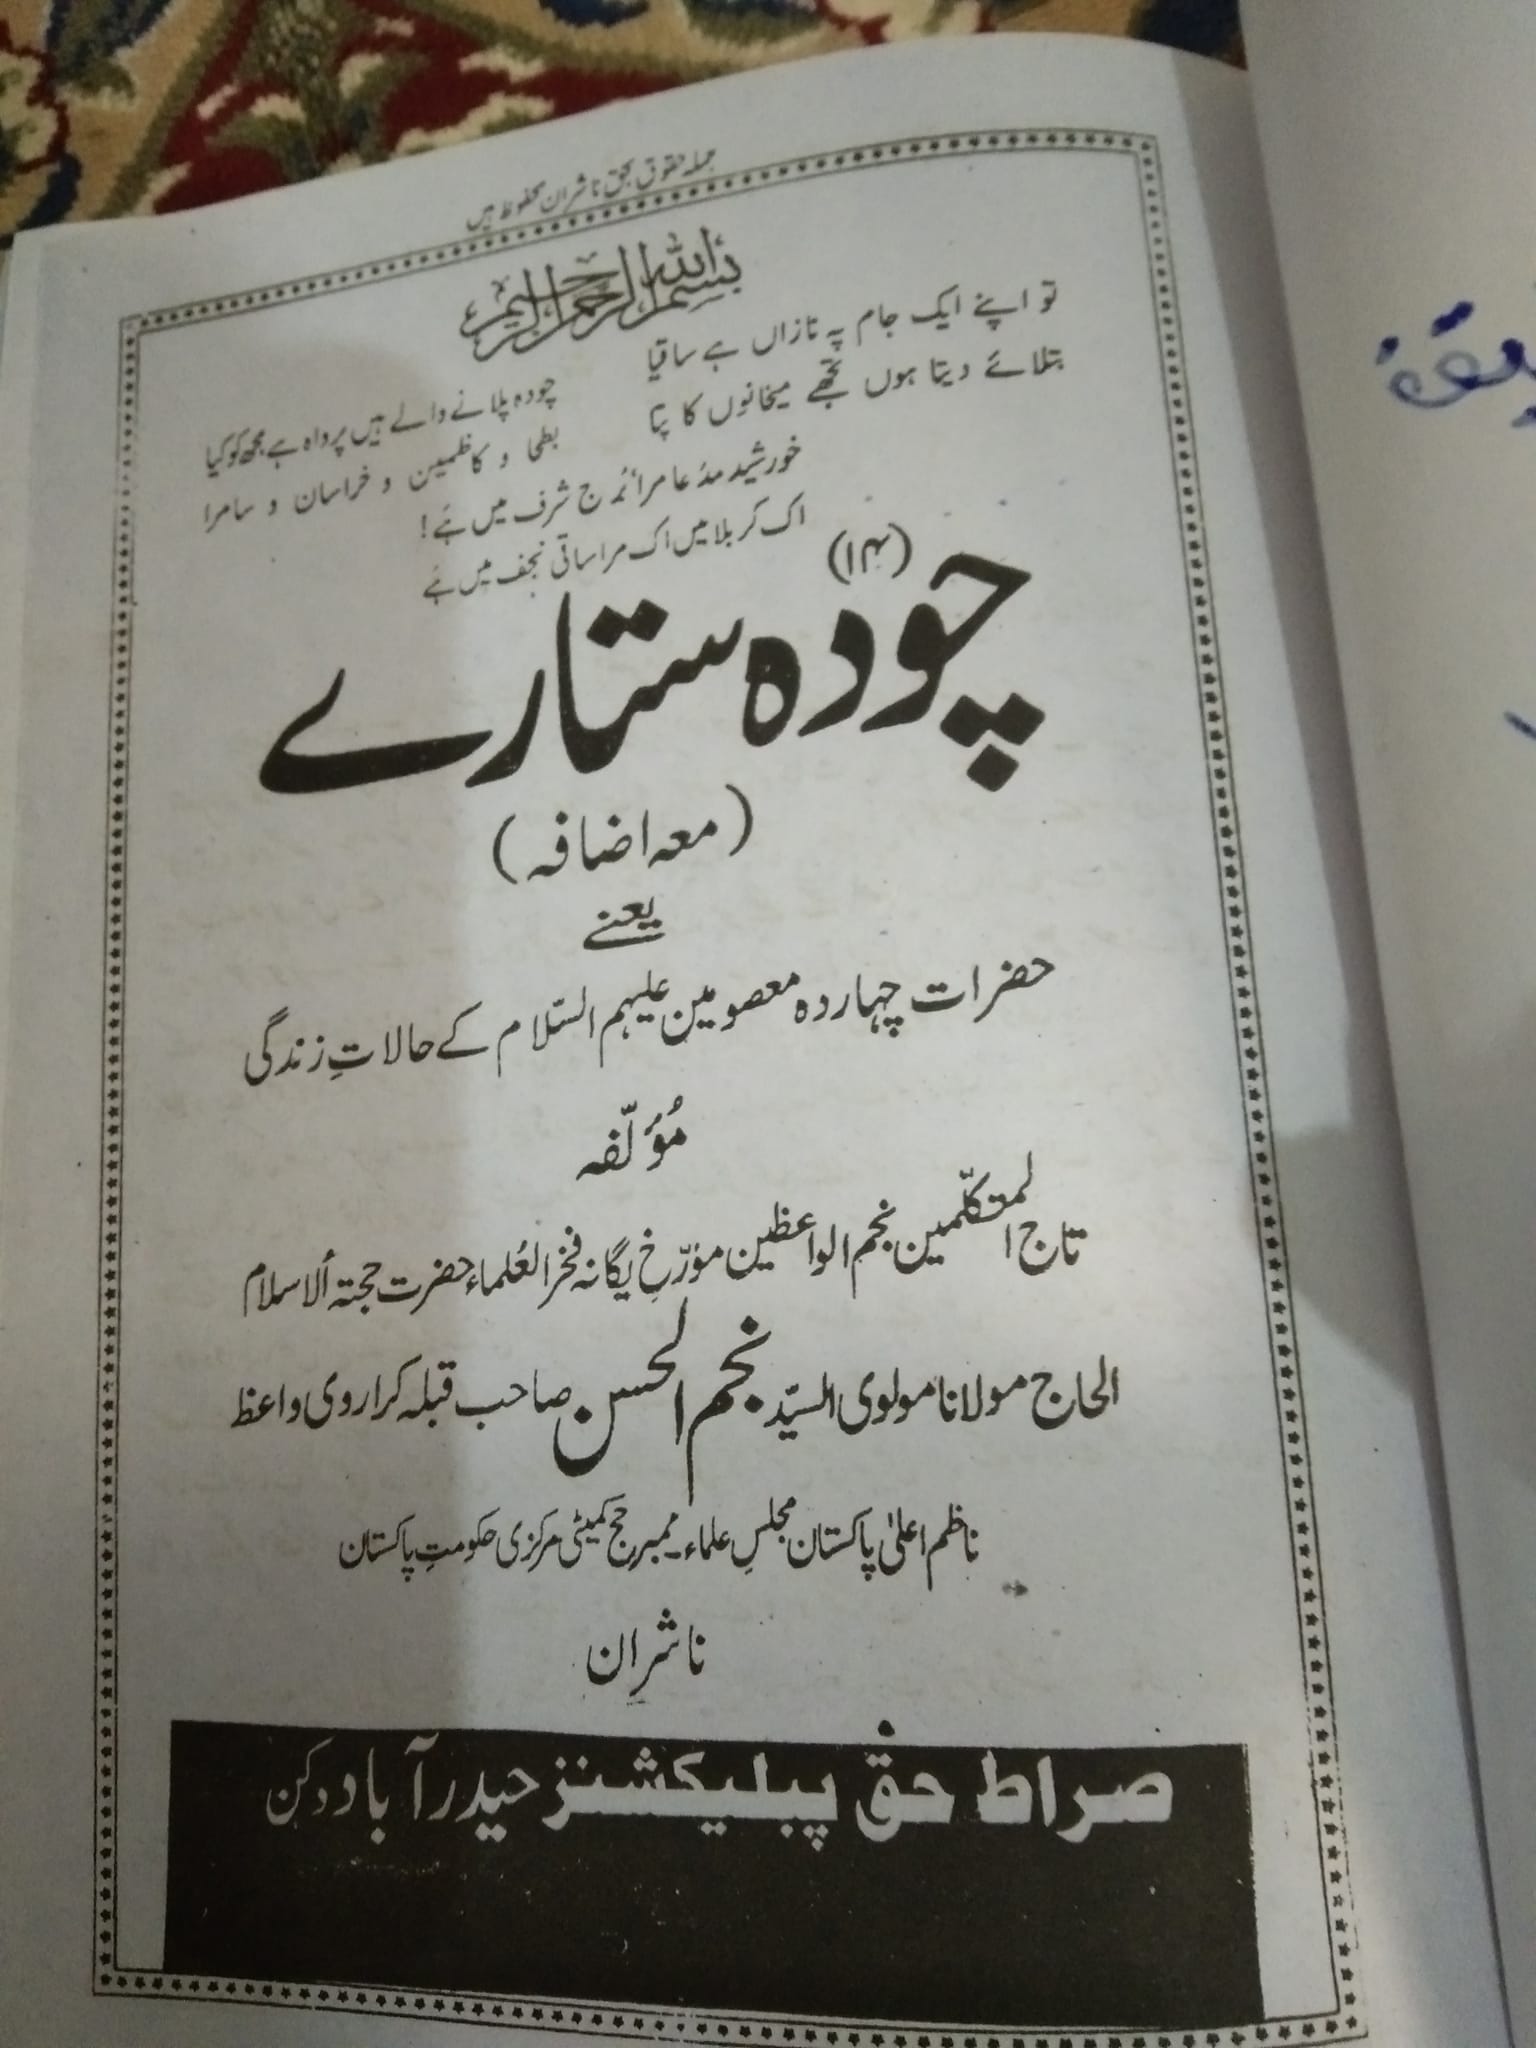 جملہ حقوق بحق ناشران محفوظ ہیں
بسم اللہ الرحمن الرحیم
تو اپنے ایک جام پہ نازاں ہے ساقیا
چودہ پلانے والے ہیں پرواہ ہے مجھ کو کیا
بتلائے دیتا ہوں تجھے میخانوں کا پتا
بطحا و کاظمین و خراسان و سامرا
خورشید مدعا مرا برج شرف میں ہے!
اک کربلا میں اک مرا ساقی نجف میں ہے
(۱۴)
چودہ ستارے
(معہ اضافہ)
یعنے
حضرات چہاردہ معصومین علیہم السّلام کے حالاتِ زندگی
مُؤلّفہ
تاج المتکلّمین نجم الواعظین مؤرّخ یگانہ فخر العُلماء حضرت حجتہ الاسلام
الحاج مولانا مولوی السیّد نجم الحسن صاحب قبلہ کراروی واعظ
ناظم اعلیٰ پاکستان مجلسِ علماء۔ ممبر حج کمیٹی مرکزی حکومتِ پاکستان
ناشران
صراط حق پبلیکشنز حیدرآباد دکن